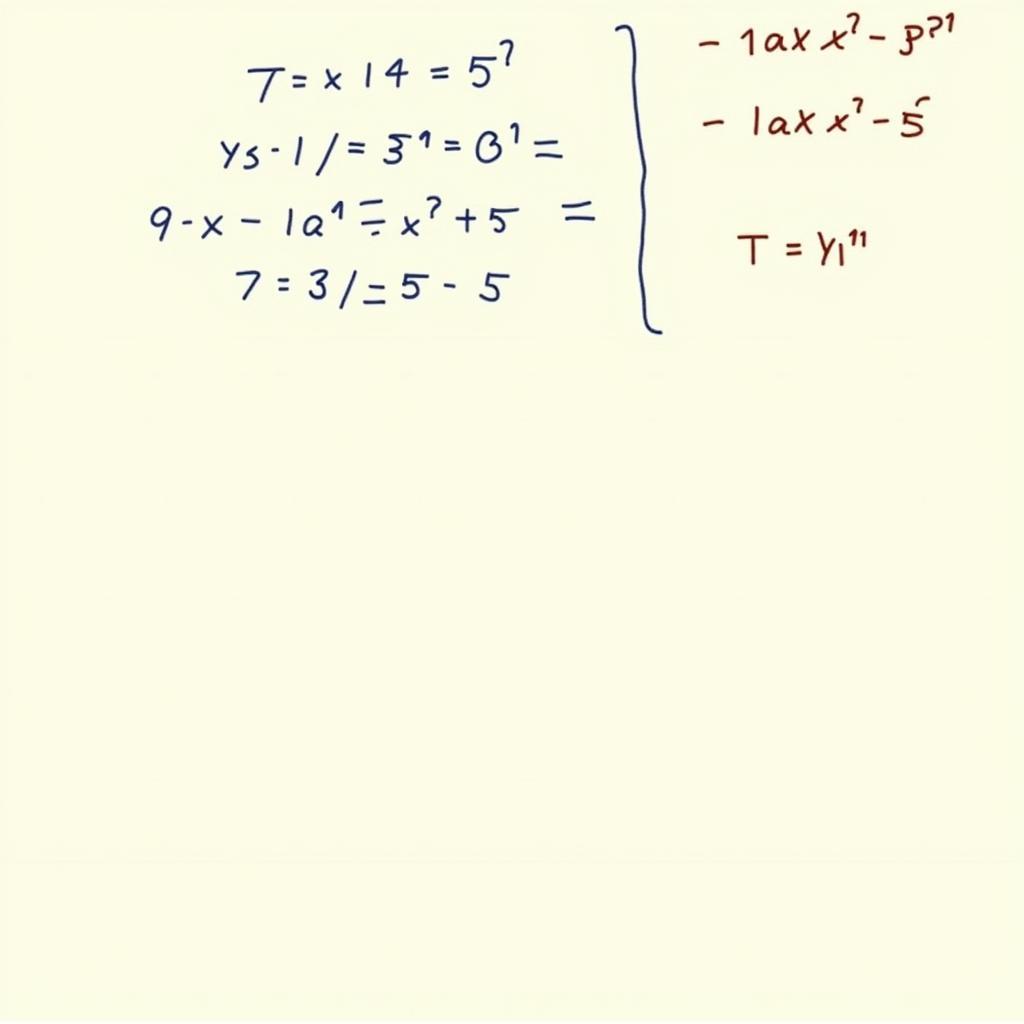 T = x 14 = 5?
ys - 1 / = 3¹ = 0¹ =
9 - x - 1a¹ = x? + 5 =
7 = 3 / = 5 - 5
- 1ax x? - 3?¹
- 1ax x? - 5
T = y₁¹¹